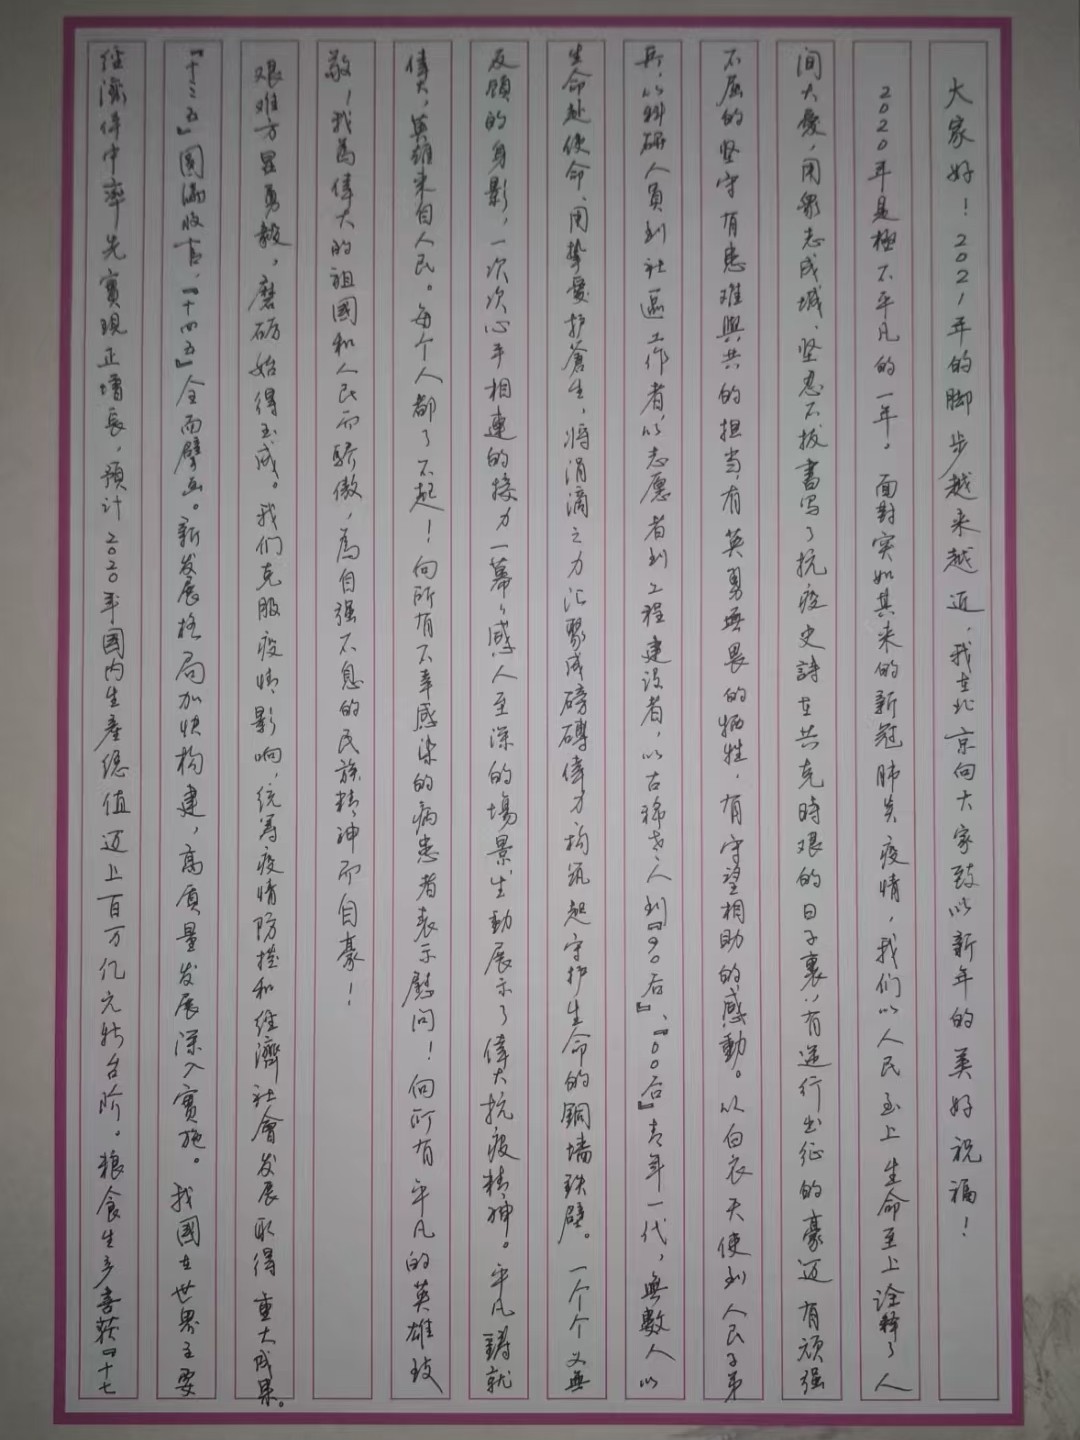 大家好！2021年的脚步越来越近，我在北京向大家致以新年的美好祝福！
2020年是極不平凡的一年。面對突如其来的新冠肺炎疫情，我们以人民至上生命至上诠釋了人
间大愛，用衆志成城、坚忍不拔書写了抗疫史詩在共克時艰的日子裏，有逆行出征的豪迈有顽强
不屈的坚守有患难與共的担当，有英勇無畏的牺牲，有守望相助的感動。从白衣天使到人民子弟
兵，从科研人員到社區工作者从志愿者到工程建设者，从古稀老人到『90后』、『00后』青年一代，無數人以
生命赴使命、用挚愛护蒼生，将涓滴之力汇聚成磅礴偉力构筑起守护生命的銅墙鉄壁。一个个义無
反顾的身影，一次次心手相連的接力一幕幕感人至深的場景生動展示了偉大抗疫精神。平凡鑄就
偉大，英雄来自人民。每个人都了不起！向所有不幸感染的病患者表示慰问！向所有平凡的英雄致
敬！我為偉大的祖國和人民而驕傲，為自强不息的民族精神而自豪！
艰难方显勇毅，磨砺始得玉成。我们克服疫情影响，统筹疫情防控和经濟社會发展取得重大成果。
『十三五』圓滿收官，『十四五』全面擘画。新发展格局加快构建，高质量发展深入實施。我國在世界主要
经濟体中率先實現正增長，預计2020年國内生產總值迈上百万亿元新台阶。粮食生产喜获『十七